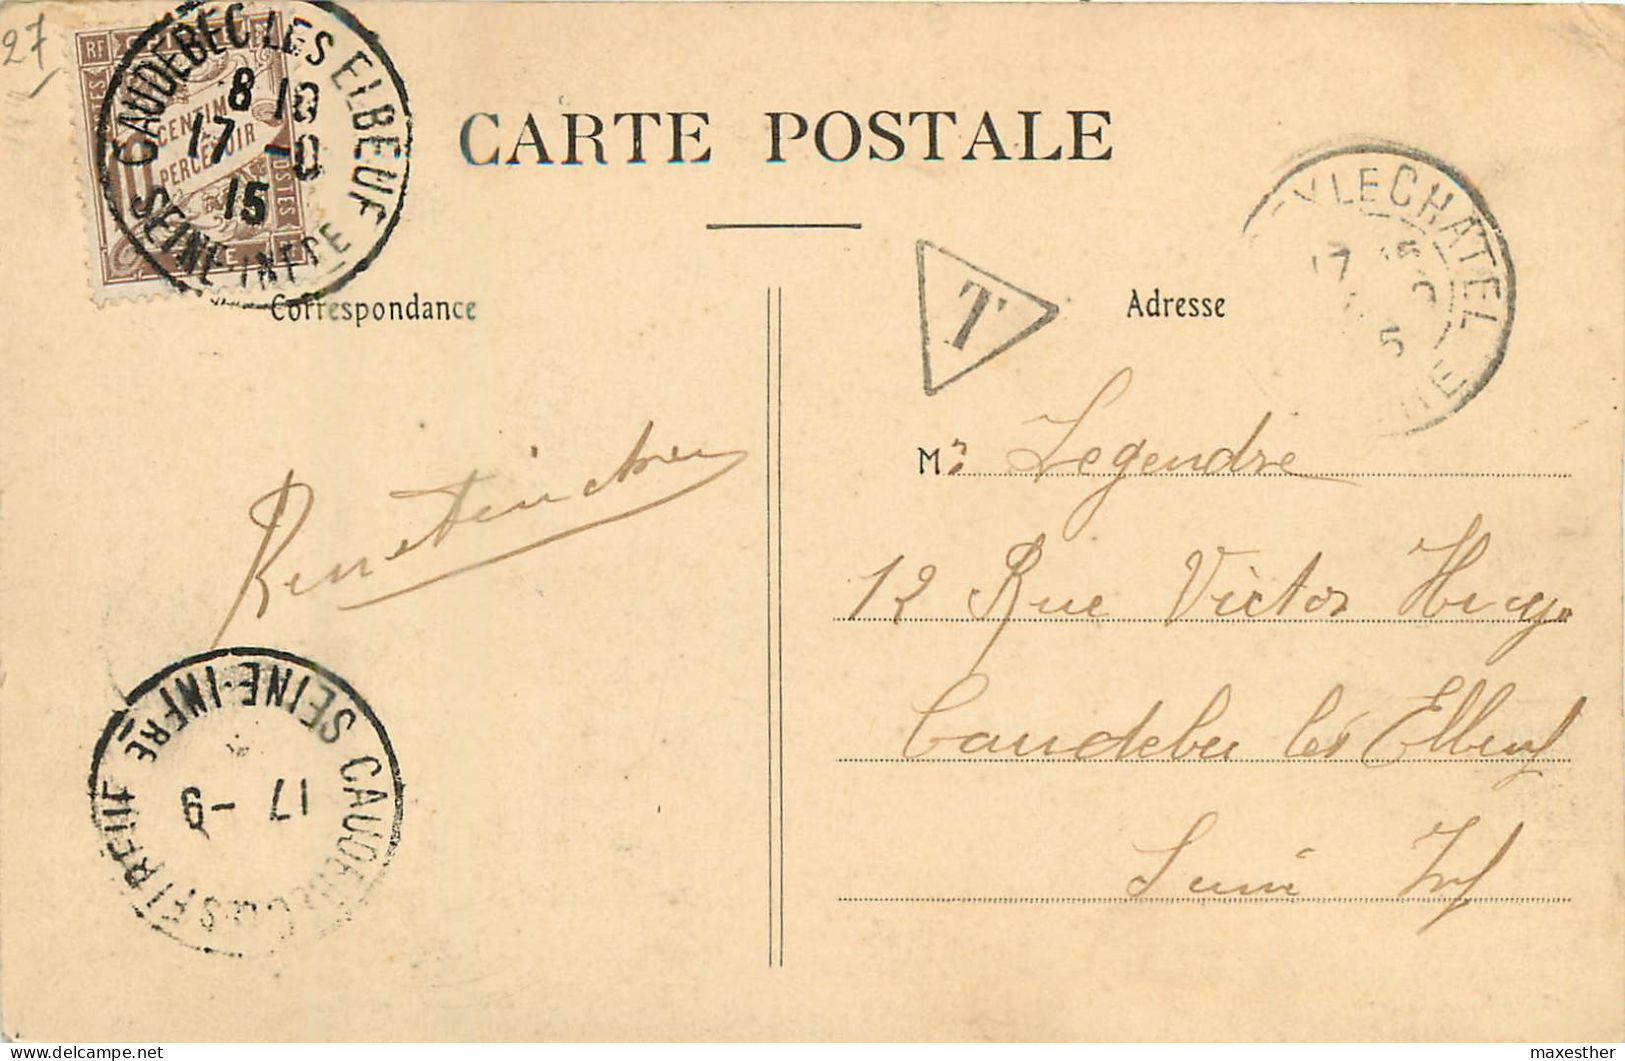 27
RF
POSTES
CENTIMES
À
PERCEVOIR
10
CAUDEBEC LES ELBEUF
8 10
17 -9
15
SEINE-INFRE
CARTE POSTALE
Correspondance
T
Adresse
LECHATEL
17
5
M. Legendre
12 Rue Victor Hugo
Caudebec les Elbeuf
Seine Inf
CAUDEBEC LES ELBEUF
17 -9
SEINE-INFRE
maxesther